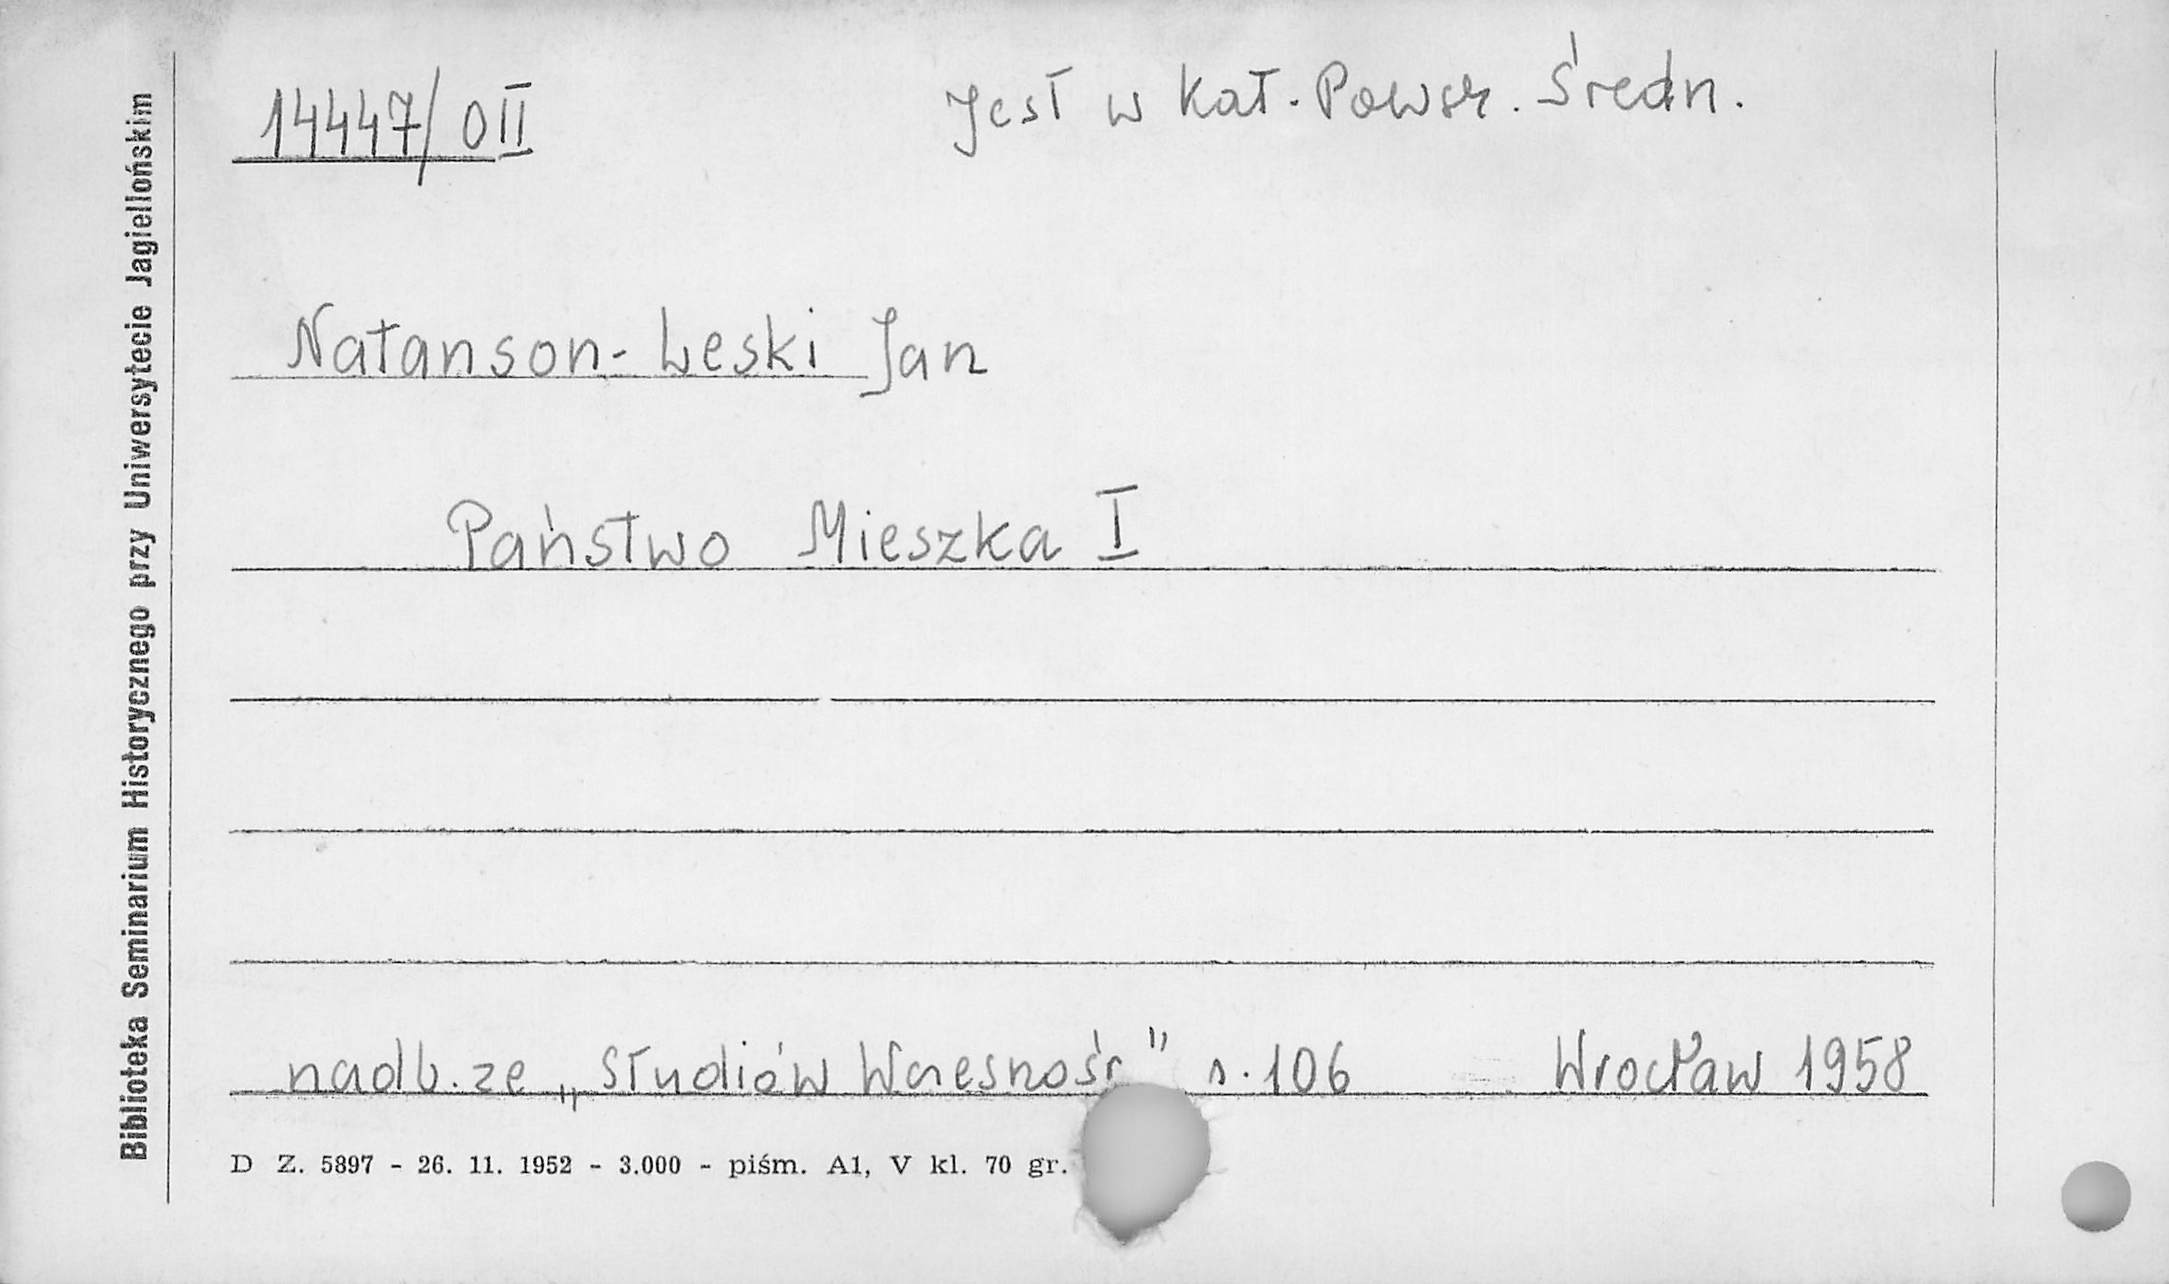 Biblioteka Seminarium Historycznego przy Uniwersytecie Jagiellońskim
14447/0II Jest w kat. Powsz. Średn.
Natanson-Leski Jan
Państwo Mieszka I
nadb. ze „Studiów Wczesnośr." s. 106 Wrocław 1958
D Z. 5897 - 26. 11. 1952 - 3.000 - piśm. A1, V kl. 70 gr.